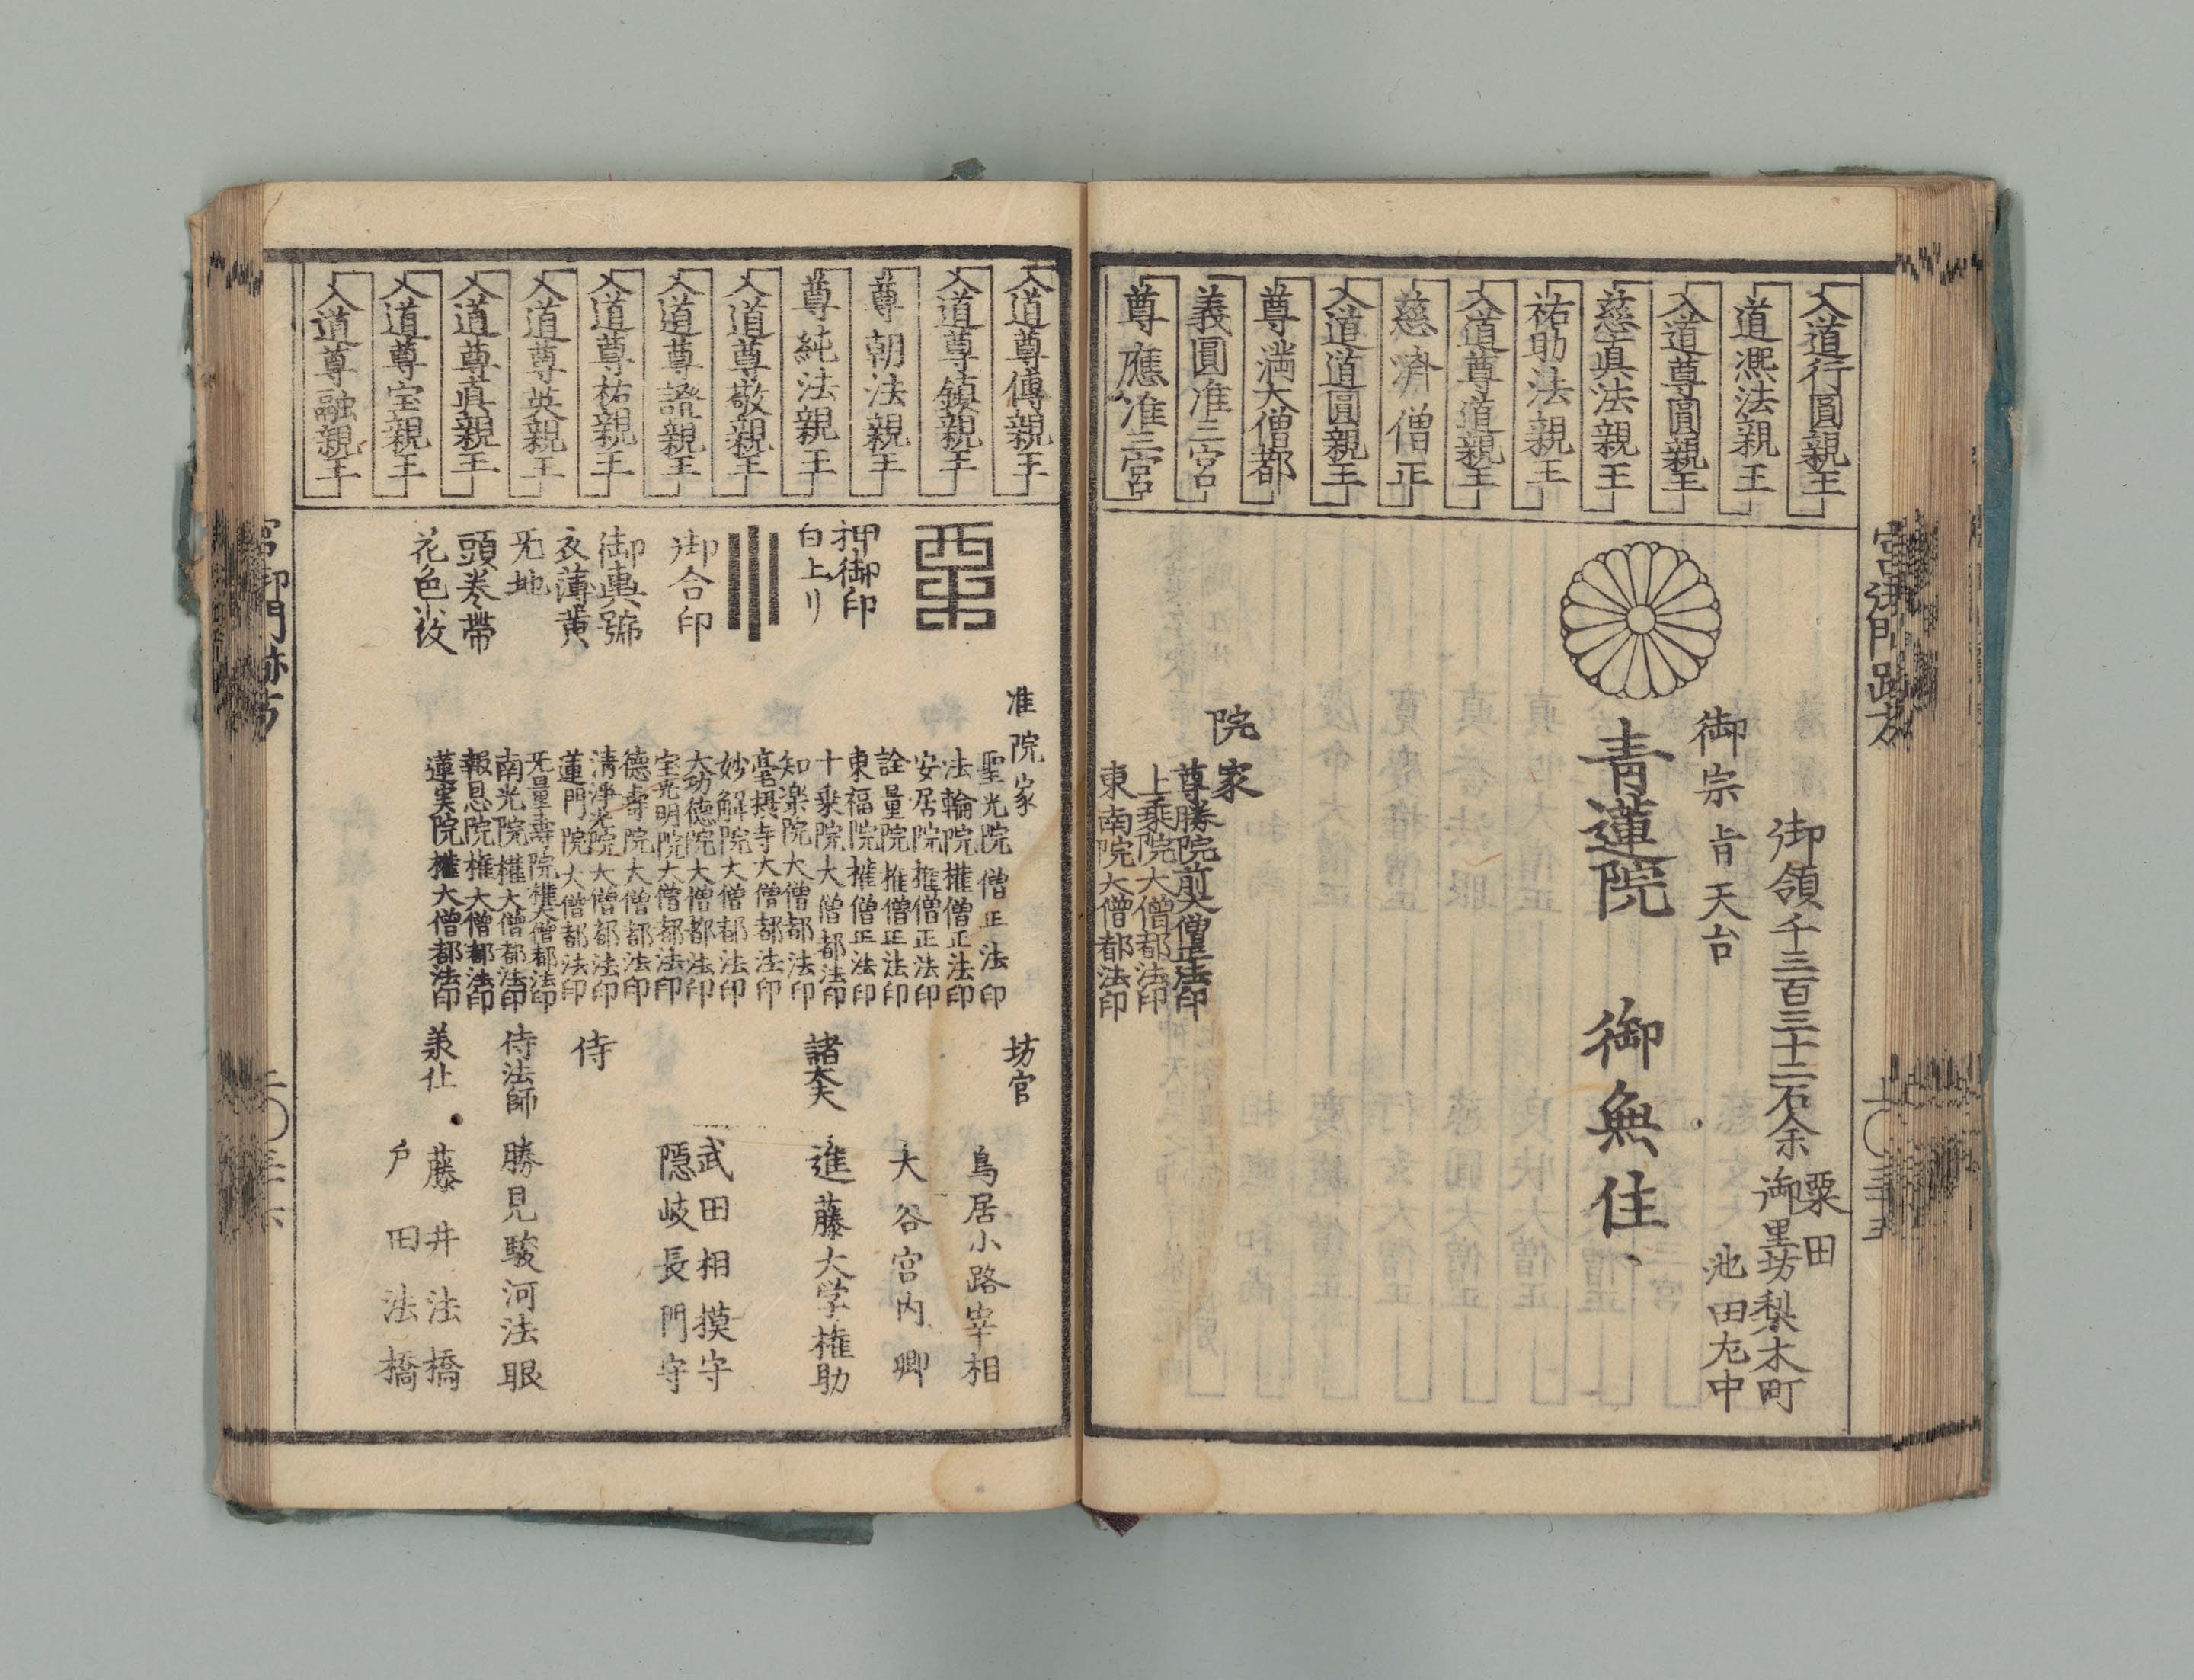 入道行圓親王
道凞法親王
入道尊圓親王
慈真法親王
祐助法親王
入道尊道親王
慈濟僧正
入道道圓親王
尊満大僧都
義圓准三宮
尊應准三宮
御領千三百三十二石余
粟田
御里坊梨木町
池田左中
御宗旨天台
青蓮院
御無住
院家
尊勝院前大僧正法印
上乗院大僧都法印
東南院大僧都法印
入道尊傳親王
入道尊鎮親王
尊朝法親王
尊純法親王
入道尊敬親王
入道尊證親王
入道尊祐親王
入道尊英親王
入道尊真親王
入道尊宝親王
入道尊融親王
押御印
白上り
御合印
御輿舁
衣薄黄
无地
頭巻帶
花色小紋
准院家
聖光院僧正法印
法輪院権僧正法印
安居院権僧正法印
詮量院権僧正法印
東福院権僧正法印
十乗院大僧都法印
知楽院大僧都法印
妙解院大僧都法印
大功徳院大僧都法印
宝光明院大僧都法印
徳壽院大僧都法印
清浄光院大僧都法印
蓮門院大僧都法印
无量壽院権大僧都法印
南光院権大僧都法印
報恩院権大僧都法印
蓮実院権大僧都法印
坊官
鳥居小路宰相
大谷宮内卿
諸大夫
進藤大学権助
武田相摸守
隠岐長門守
侍
侍法師
勝見駿河法眼
承仕
藤井法橋
戸田法橋